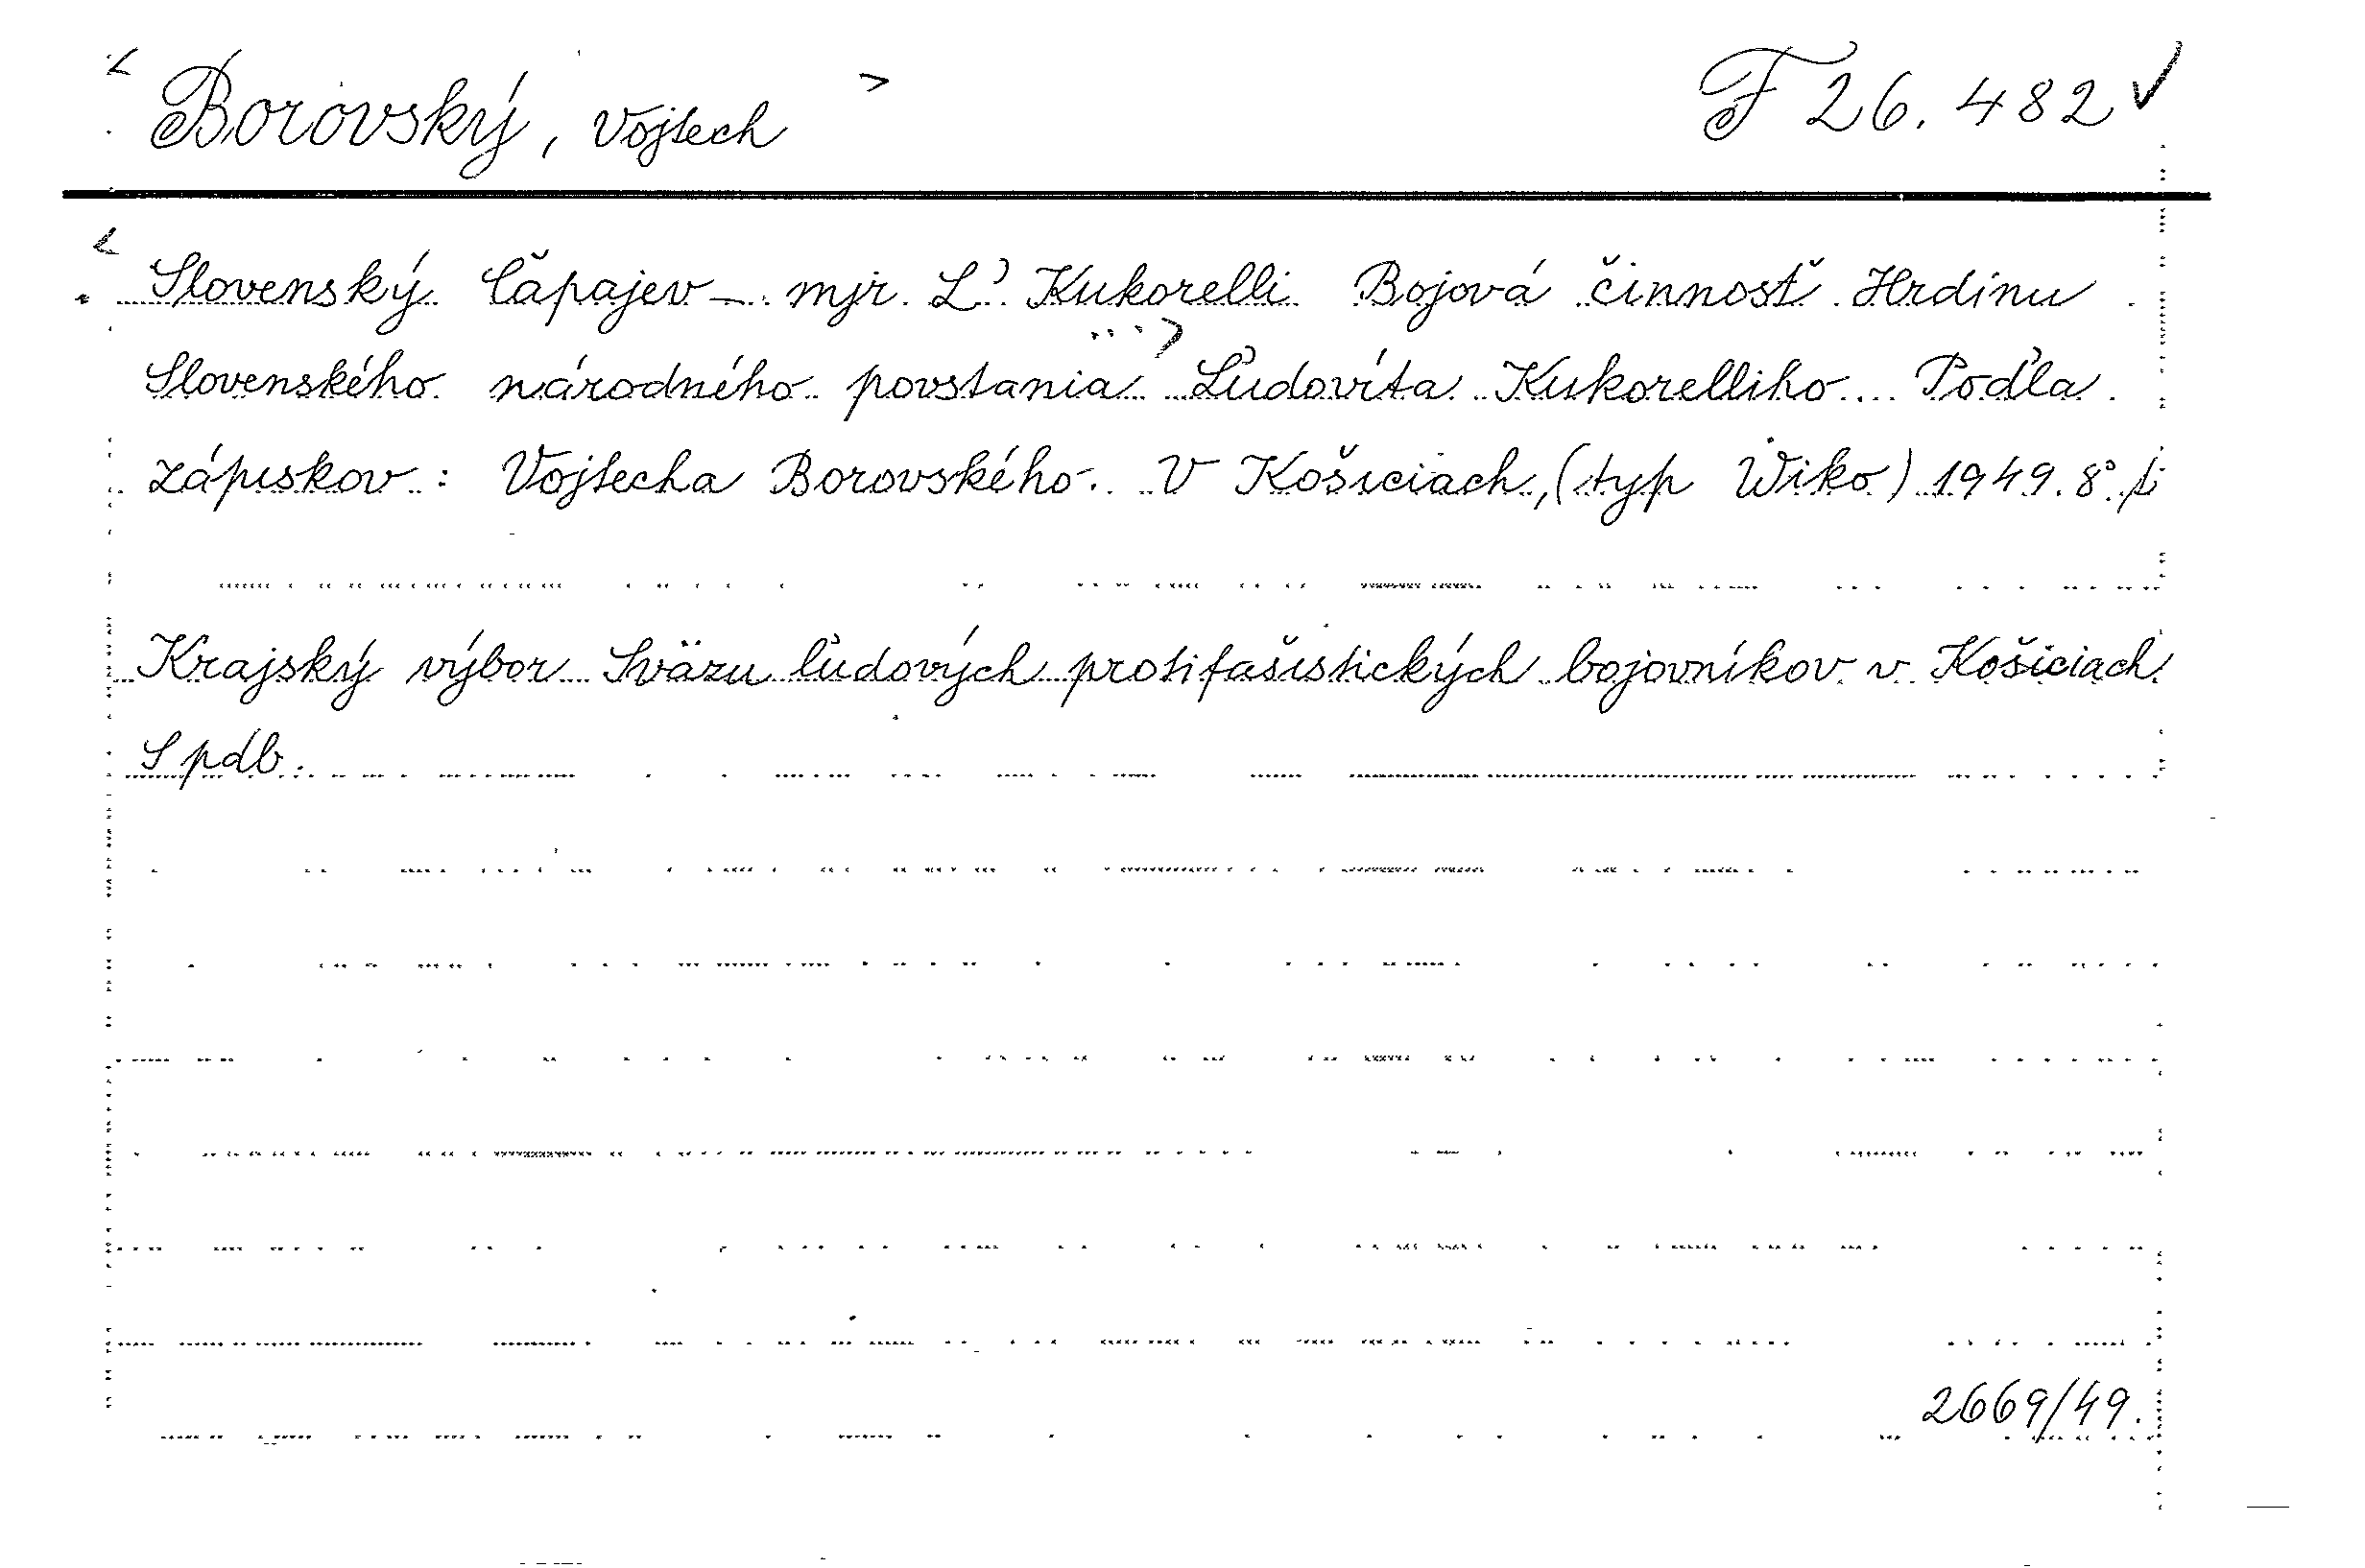 < Borovský, Vojtech > F 26.482 ✓
< Slovenský Čapajev – mjr. Ľ. Kukorelli Bojová činnosť Hrdinu
Slovenského národného povstania ...> Ľudovíta Kukorelliho... Podľa
zápiskov: Vojtecha Borovského. V Košiciach, (typ Wiko) 1949. 8°.
Krajský výbor Sväzu ľudových protifašistických bojovníkov v Košiciach
S pdb.
2669/49.